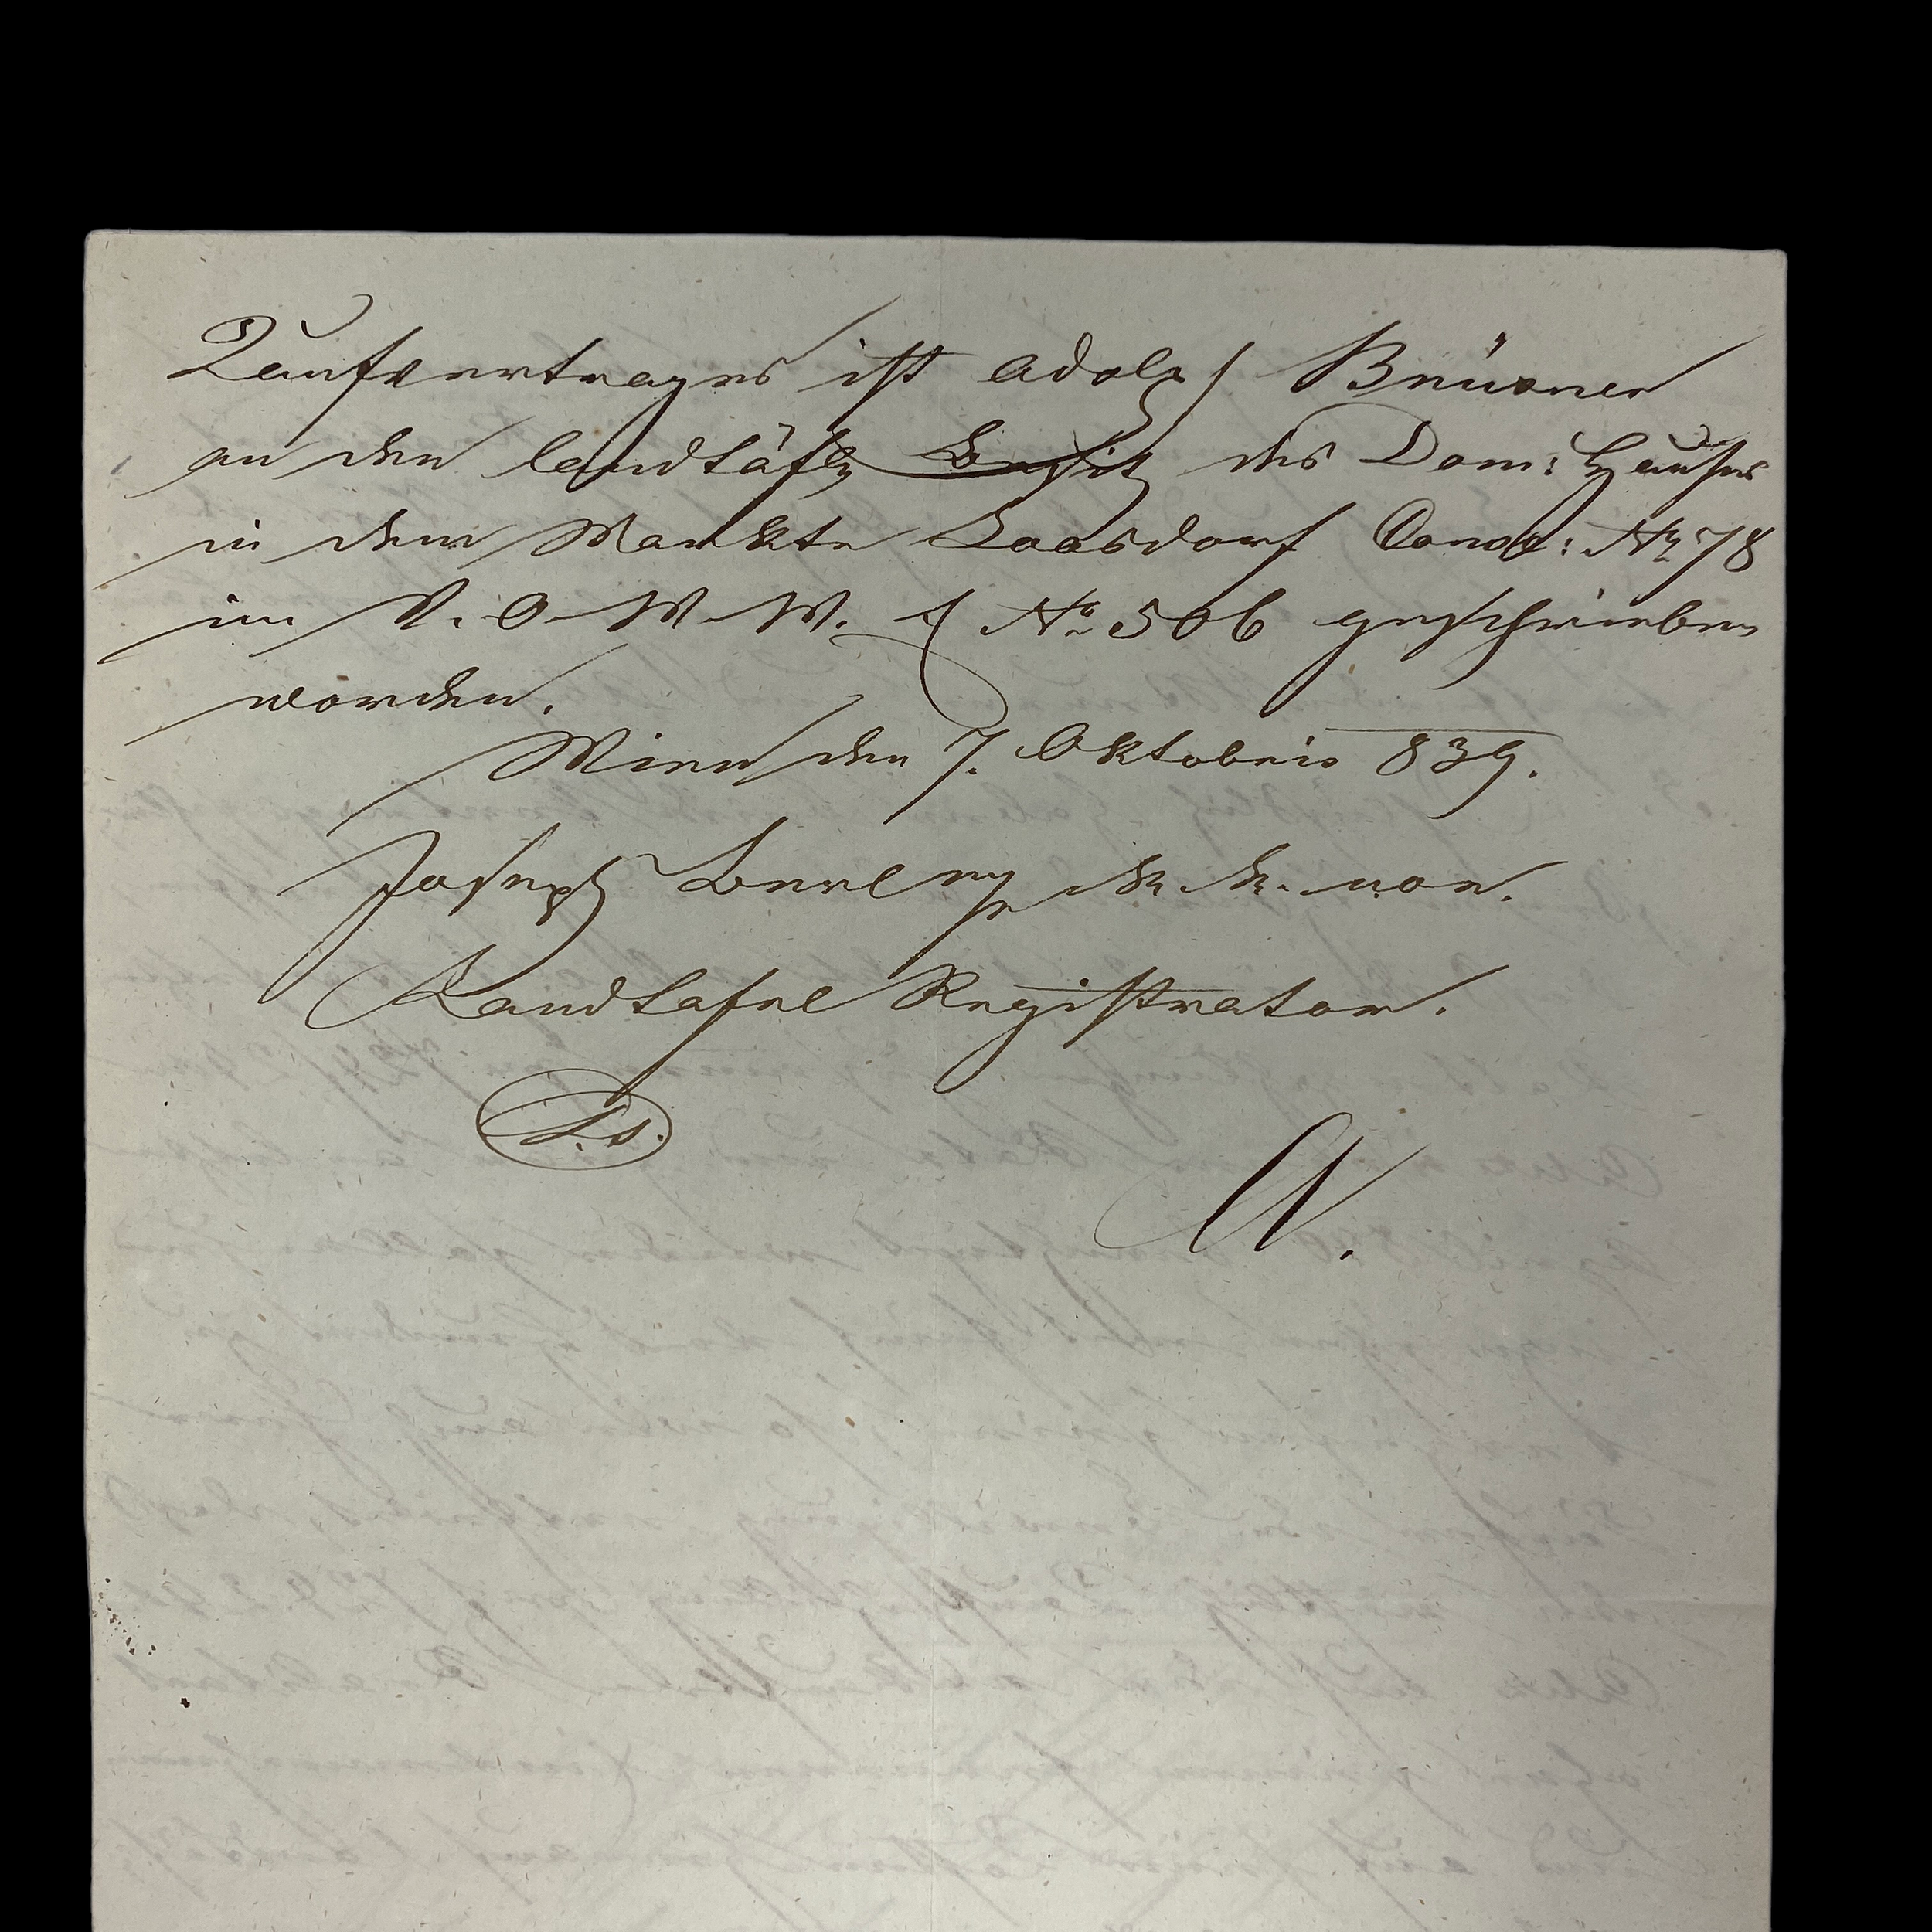 Kaufvertrages ist Adolph Brüxner
an den landtäfl: Besitz des Dom: Hauses
in dem Markte Loosdorf Consc: No 78
im V. O. W. W. No 506 geschrieben
worden.
Wien den 7. Oktobris 839.
Joseph k. k. n. oe.
Landtafel Registrator.
L. S.